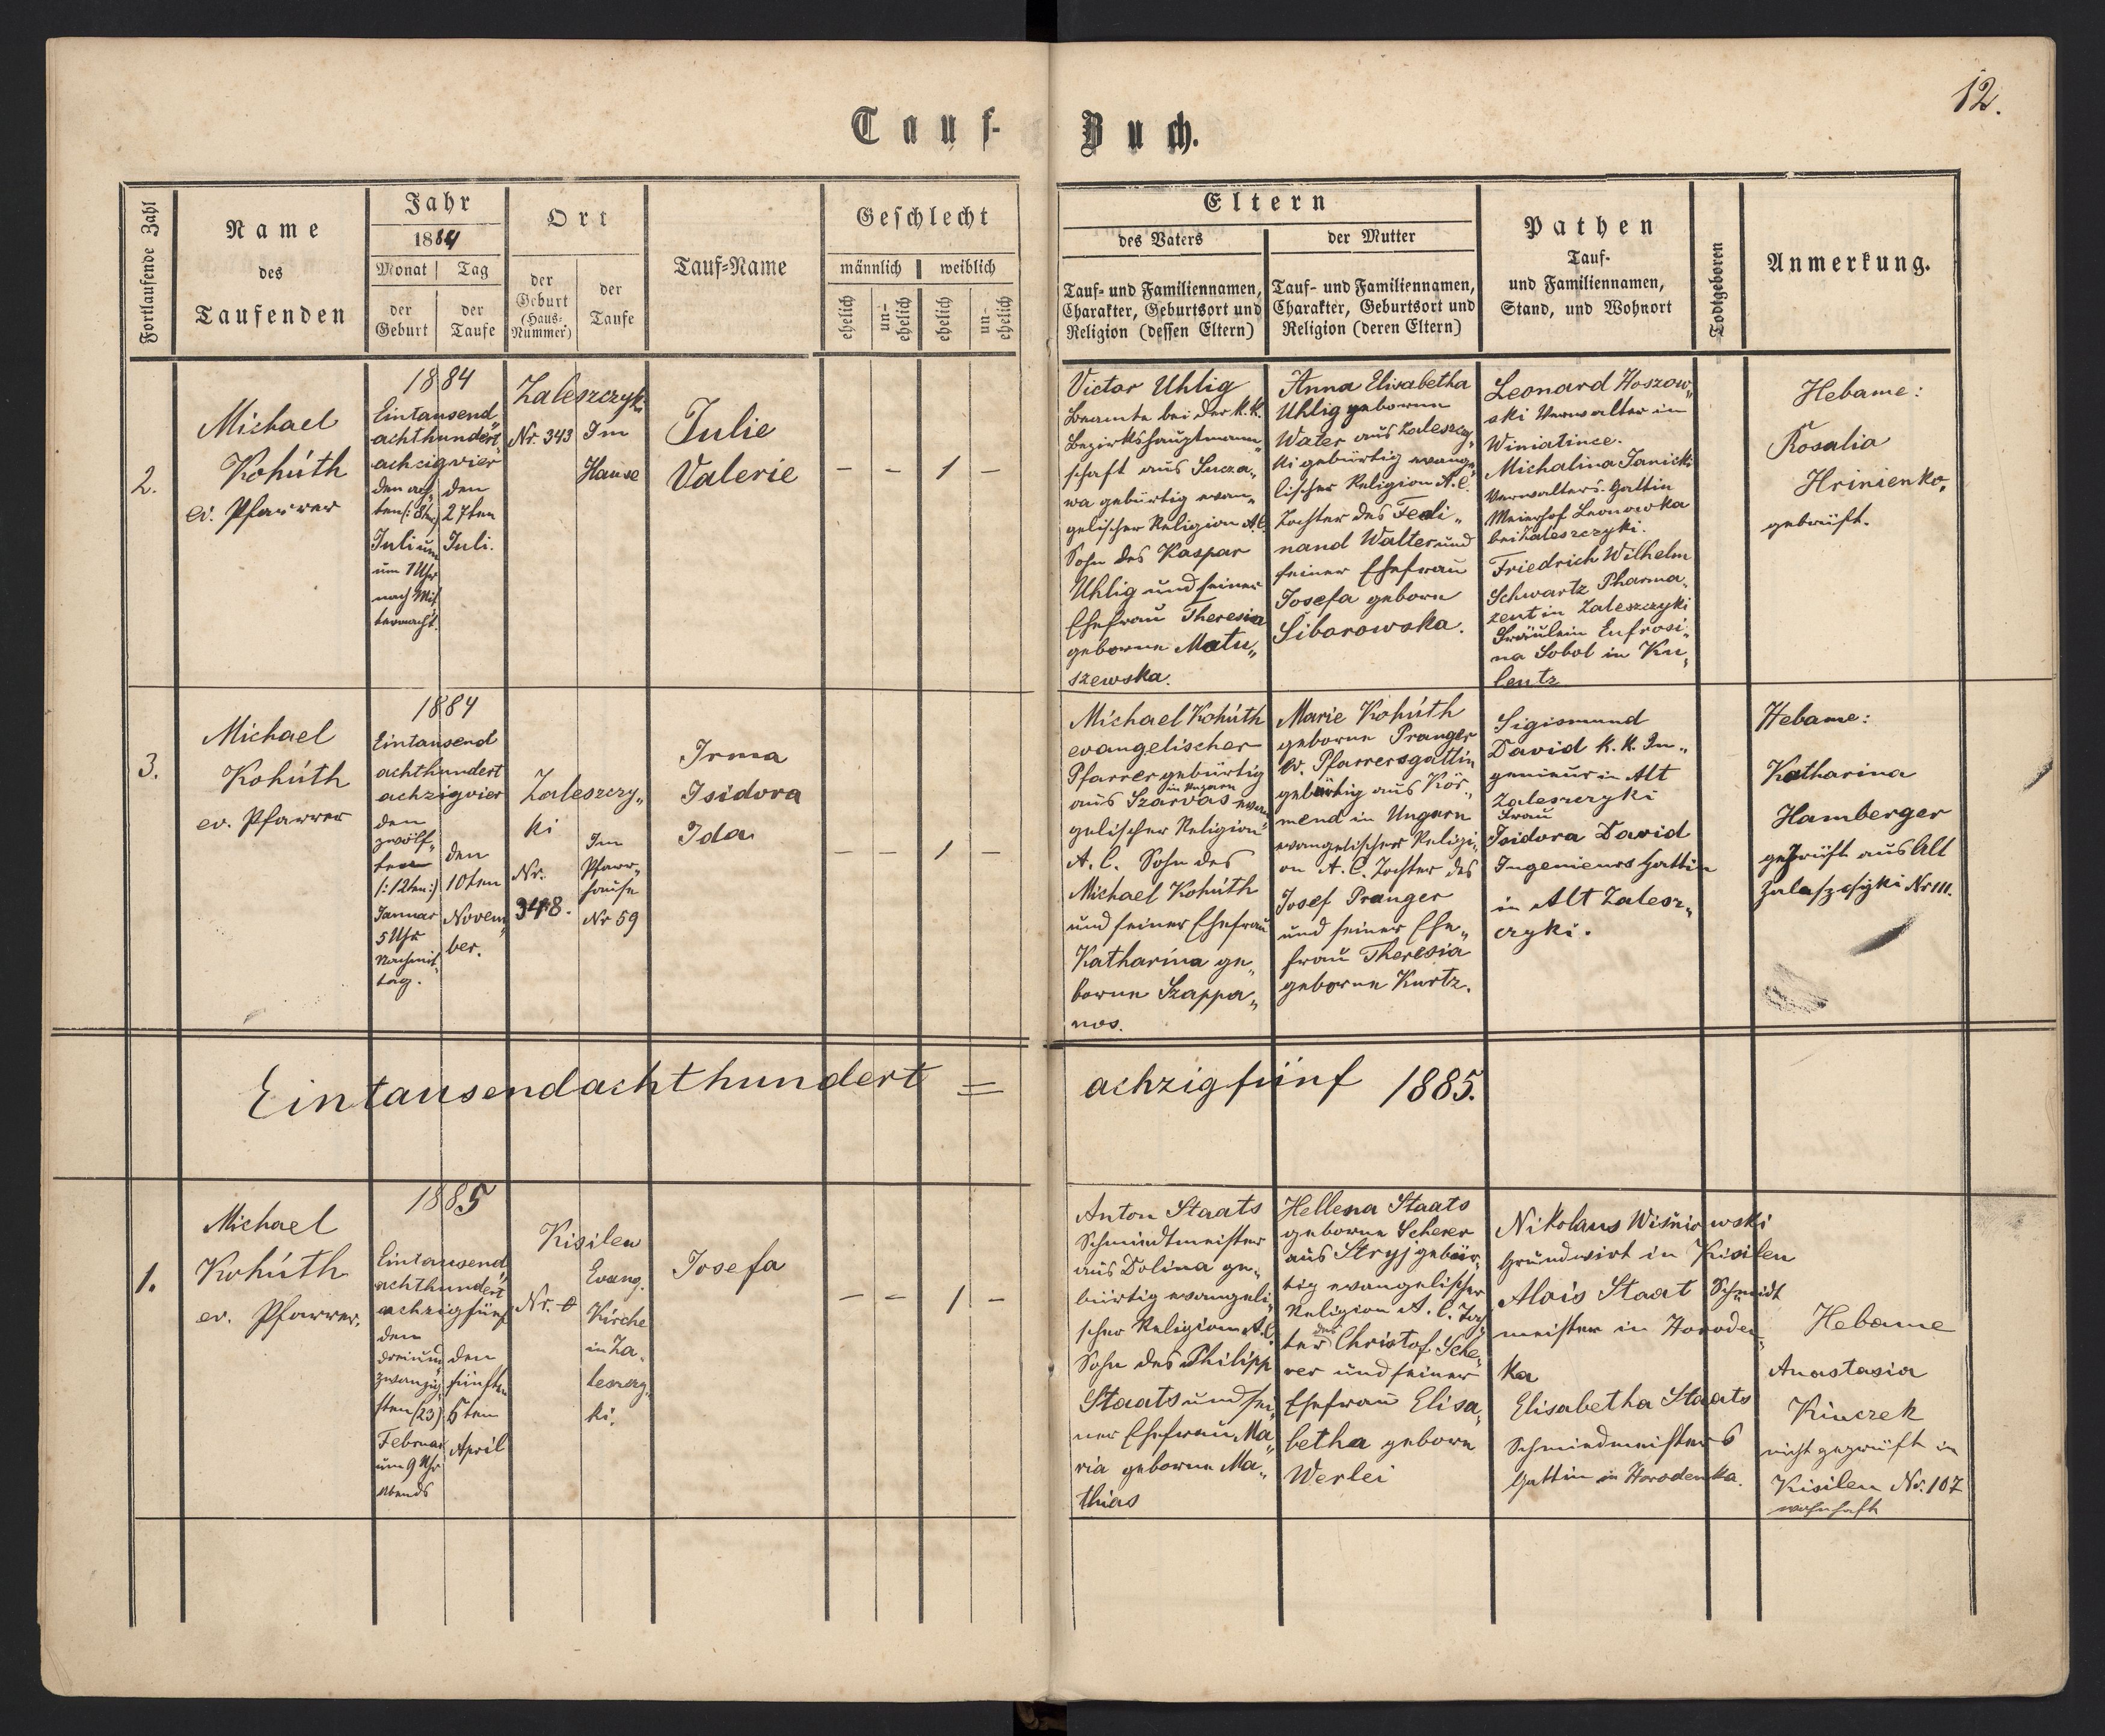 12.
Tauf-Buch.
Fortlaufende Zahl
Name
des
Taufenden
Jahr
1884
Monat
Tag
der
Geburt
der
Taufe
Ort
der
Geburt
(Haus-
Nummer)
der
Taufe
Tauf-Name
Geschlecht
männlich
weiblich
ehelich
un-
ehelich
ehelich
un-
ehelich
Eltern
des Vaters
der Mutter
Tauf- und Familiennamen,
Charakter, Geburtsort und
Religion (dessen Eltern)
Tauf- und Familiennamen,
Charakter, Geburtsort und
Religion (deren Eltern)
Pathen
Tauf-
und Familiennamen,
Stand, und Wohnort
Todtgeboren
Anmerkung.
2.
Michael
Kohúth
ev. Pfarrer
1884
Eintausend„
achthundert
achzigvier
den ach„
ten (: 8ten)
Juli um
um 1 Uhr
nach Mit
ternacht.
den
27ten
Juli.
Zaleszczyki
Nr. 343
Im
Hause
Julie
Valerie
– – 1 –
Victor Uhlig
Beamte bei der k.k.
Bezirkshauptmann„
schaft aus Sucza„
wa gebürtig evan„
gelischer Religion A.C.
Sohn des Kaspar
Uhlig und seiner
Ehefrau Theresia
geborne Matu„
szewska.
Anna Elisabetha
Uhlig geborene
Walter aus Zaleszczy„
ki gebürtig evange„
lischer Religion A.C.
Tochter des Ferdi„
nand Walter und
seiner Ehefrau
Josefa geborn
Siborowska.
Leonard Hoszow„
ski Verwalter in
Winiatince.
Michalina Janicki
Verwalter's-Gattin
Meierhof Leonowka
bei Zaleszczyki.
Friedrich Wilhelm
Schwartz Pharma„
zent in Zaleszczyki
Fräulein Eufrosi„
na Sobol in Ku„
lentz
Hebame:
Rosalia
Hrinienko,
geprüft.
3.
Michael
Kohúth
ev. Pfarrer
1884
Eintausend
achthundert
achzigvier
den
zwölf„
ten
(: 12ten :)
Januar
5 Uhr
Nachmit„
tag.
den
10ten
Novem„
ber.
Zaleszczy„
ki
Nr.
348.
Im
Pfarr„
hause
Nr 59
Irma
Isidora
Ida
– – 1 –
Michael Kohúth
evangelischer
Pfarrer gebürtig
aus Szarvas in Ungarn evan
gelischer Religion
A. C. Sohn des
Michael Kohúth
und seiner Ehefrau
Katharina ge„
borne Szappa„
nos.
Marie Kohúth
geborne Pranger
ev. Pfarrersgattin
gebürtig aus Kör„
mend in Ungarn
evangelischer Religi„
on A. C. Tochter des
Josef Pranger
und seiner Ehe„
frau Theresia
geborne Kurtz.
Sigismund
David k. k. In„
genieur in Alt
Zaleszczyki
Frau
Isidora David
Ingenieurs Gattin
in Alt Zalesz„
czyki.
Hebame:
Katharina
Hamberger
geprüft aus Alt
Zaleszczyki Nr 111.
Eintausendachthundert = achzigfünf 1885.
1.
Michael
Kohúth
ev. Pfarrer.
1885
Eintausend„
achthundert
achzigfünf
den
dreiund„
zwanzig„
sten (23)
Februar
um 9 Uhr
Abends
den
fünften
5ten
April
Kisileu
Nr.
Evang.
Kirche
in Za„
leszczy„
ki.
Josefa
– – 1 –
Anton Staats
Schmiedtmeister
aus Dolina ge„
bürtig evangeli„
scher Religion A.C.
Sohn des Philipp
Staats und sei„
ner Ehefrau Ma„
ria geborne Ma„
thias
Hellena Staats
geborne Scherer
aus Stryj gebür„
tig evangelischer
Religion A. C. Toch„
ter des Christof Sche„
rer und seiner
Ehefrau Elisa„
betha geborn
Werlei
Nikolaus Wiśniowski
Grundwirt in Kisileu
Alois Staat Schmidt
meister in Horoden„
ka
Elisabetha Staats
Schmiedmeisters
Gattin in Horodenka.
Hebame
Anastasia
Kinczek
nicht geprüft in
Kisileu Nr. 107
wohnhaft